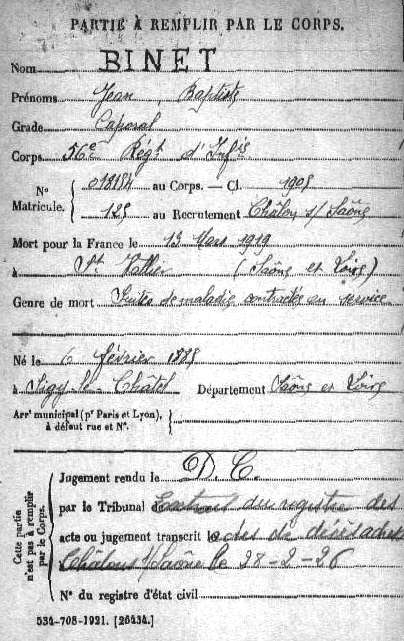 PARTIE À REMPLIR PAR LE CORPS.
Nom BINET
Prénoms Jean, Baptiste
Grade Caporal
Corps 56e Régt d'Infie
N° Matricule. 018184 au Corps. — Cl. 1905
125 au Recrutement Châlon s/ Saône
Mort pour la France le 13 Mars 1919
à St Vallier (Saône et Loire)
Genre de mort Suites de maladie contractée en service
Né le 6 février 1885
à Sigy-le-Châtel Département Saône et Loire
Arrt municipal (pr Paris et Lyon), à défaut rue et N°.
Cette partie n'est pas à remplir par le Corps.
Jugement rendu le D. C.
par le Tribunal Extrait du registre des
acte ou jugement transcrit le actes de décès
Châlons s/Saône le 28-2-26
N° du registre d'état civil
534-708-1921. [26434.]